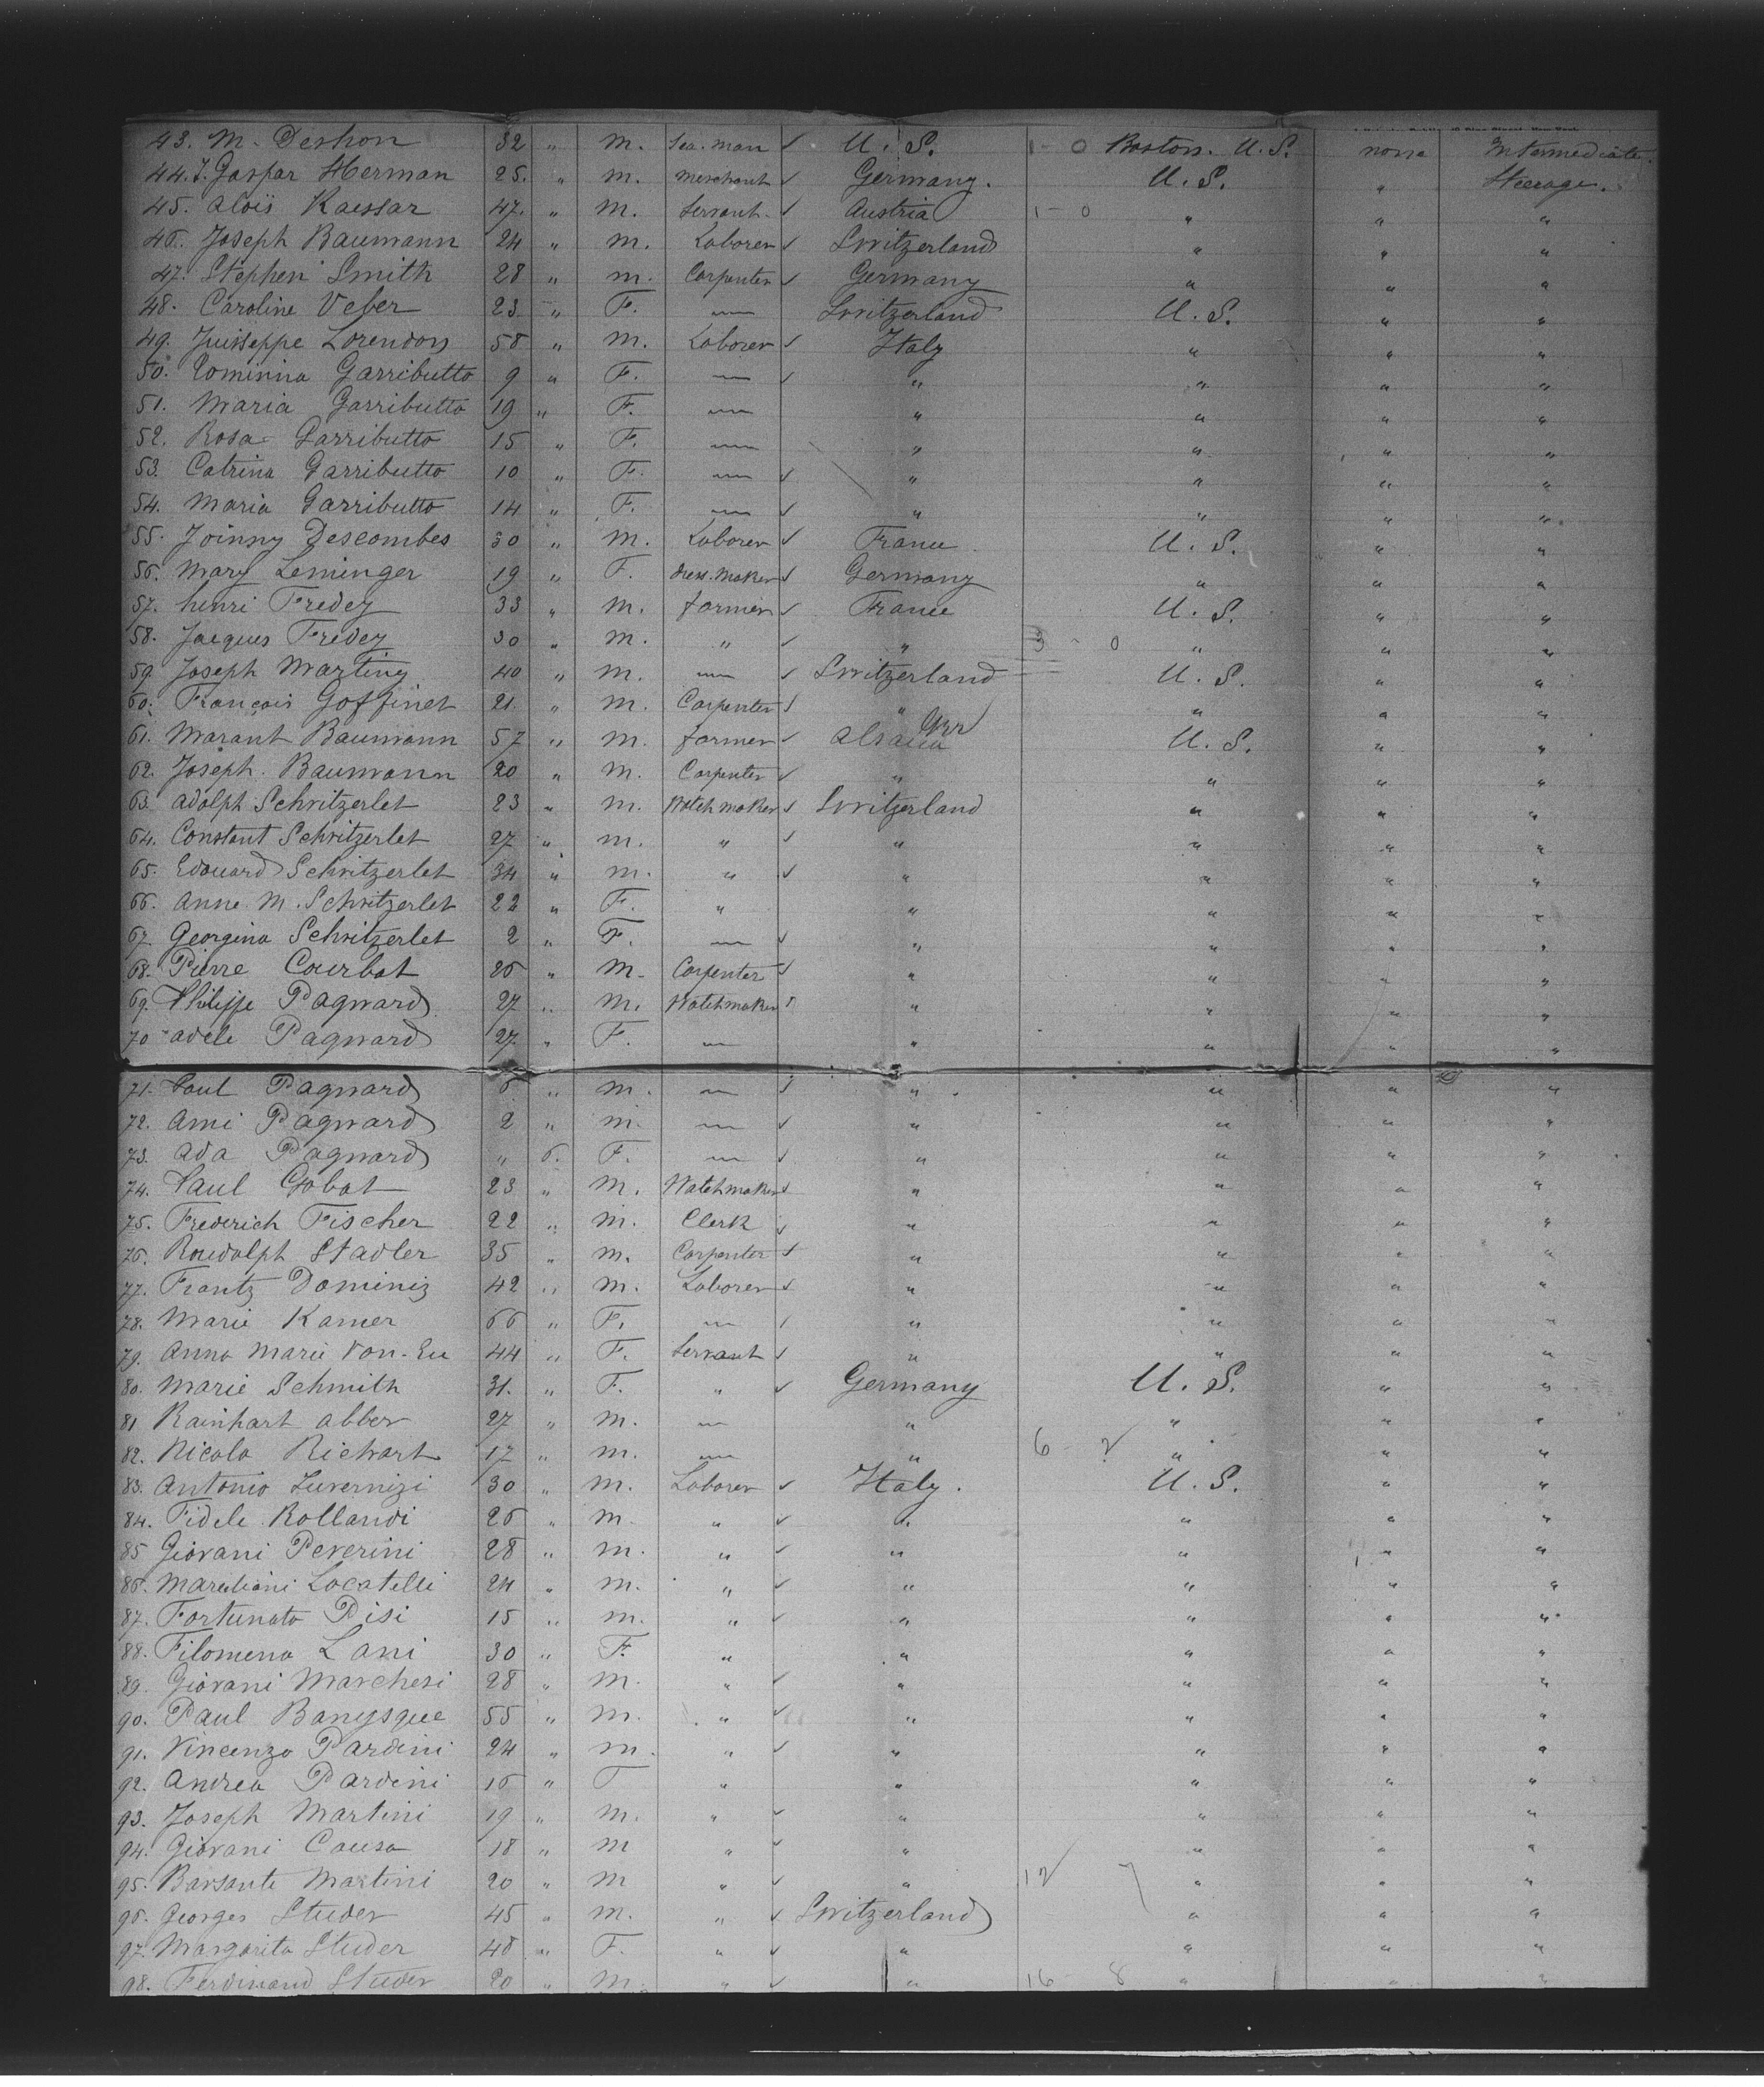 43. M. Deshon 32 " M. Sea.man ✓ U. S. 1 - 0 Boston. U.S. none Intermediate.
44. J. Gaspar Herman 25. " M. Merchant ✓ Germany. U. S. " Steerage.
45. Alois Kaessar 47. " M. Servant. ✓ Austria 1 - 0 " " "
46. Joseph Baumann 24 " M. Laborer ✓ Switzerland " " "
47. Stephen Smith 28 " M. Carpenter ✓ Germany " " "
48. Caroline Veber 23 " F. — Switzerland U. S. " "
49. Juisseppe Lorendon 58 " M. Laborer ✓ Italy " " "
50. Garributto 9 " F. — ✓ " " " "
51. Maria Garributto 19 " F. — " " " "
52. Rosa Garributto 15 " F. — " " " "
53. Catrina Garributto 10 " F. — ✓ " " " "
54. Maria Garributto 14 " F. — ✓ " " " "
55. Joinny Descombes 30 " M. Laborer ✓ France U. S. " "
56. Mary Leminger 19 " F. dress.maker ✓ Germany " " "
57. henri Fredey 33 " M. farmer ✓ France U. S. " "
58. Jacques Fredey 30 " M. " ✓ " 3 - 0 " " "
59. Joseph Marting 40 " M. — ✓ Switzerland U. S. " "
60. François Goffinet 21 " M. Carpenter ✓ " " " "
61. Marant Baumann 57 " M. farmer ✓ Alsace U. S. " "
62. Joseph. Baumann 20 " M. Carpenter ✓ " " " "
63. Adolph Schvitzerlet 23 " M. Watchmaker ✓ Switzerland " " "
64. Constant Schvitzerlet 27 " M. " ✓ " " " "
65. Edouard Schvitzerlet 34 " M. " ✓ " " " "
66. Anne M. Schvitzerlet 22 " F. " " " " "
67. Georgina Schvitzerlet 2 " F. — ✓ " " " "
68. Pierre Courbat 26 " M. Carpenter ✓ " " " "
69. Philippe Pagnard 27 " M. Watchmaker ✓ " " " "
70 Adele Pagnard 27 " F. — " " " "
71. Paul Pagnard 6 " M. — ✓ " " " "
72. Ami Pagnard 2 " M. — ✓ " " " "
73. Ada Pagnard " 6. F. — ✓ " " " "
74. Paul Gobat 23 " M. Watchmaker ✓ " " " "
75. Frederich Fischer 22 " M. Clerk ✓ " " " "
76. Roudolph Stadler 35 " M. Carpenter ✓ " " " "
77. Frantz Dominiz 42 " M. Laborer ✓ " " " "
78. Marie Kamer 66 " F. — ✓ " " " "
79. Anna Marie Von-Eu 44 " F. Servant ✓ " " " "
80. Marie Schmith 31. " F. " ✓ Germany U. S. " "
81 Rainhart Abber 27 " M. — " " " "
82. Nicola Richart 17 " M. — " 6 - 2 " " "
83. Antonio Juvernizi 30 " M. Laborer ✓ Italy. U. S. " "
84. Fidele Rollandi 26 " M. " ✓ " " " "
85 Giovani Peverini 28 " M. " ✓ " " " "
86. Locatelli 24 " M. " ✓ " " " "
87. Fortunato Pisi 15 " M. " ✓ " " " "
88. Filomena Lani 30 " F. " " " " "
89. Giovani Marchesi 28 " M. " ✓ " " " "
90. Paul Banysque 55 " M. " ✓ " " " "
91. Vincenzo Pardini 24 " M. " ✓ " " " "
92. Andrea Pardini 16 " F " " " " "
93. Joseph Martini 19 " M. " ✓ " " " "
94. Giovani Causa 18 " M " ✓ " " " "
95. Barsante Martini 20 " M " ✓ " 12 7 " " "
96. Georges Studer 45 " M. " ✓ Switzerland " " "
97. Margarita Studer 48 " F. " ✓ " " " "
98. Ferdinand Studer 20 " M. " ✓ " 16 - 8 " " "